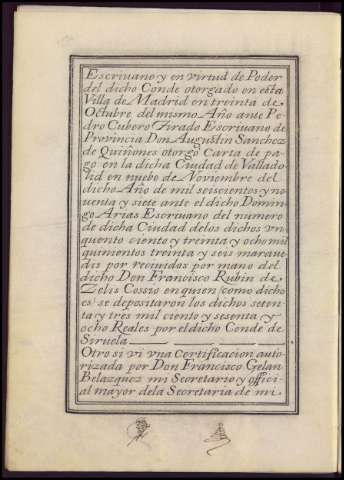 Escriuano y en virtud de Poder
del dicho Conde otorgado en esta
Villa de Madrid en treinta de
Octubre del mismo Año ante Pe-
dro Cubero Tirado Escriuano de
Prouincia Don Augustin Sanchez
de Quiñones otorgò Carta de pa-
go en la dicha Ciudad de Vallado-
lid en nuebe de Nouiembre del
dicho Año de mil seiscientos y no-
uenta y siete ante el dicho Domin-
go Arias Escriuano del numero
de dicha Ciudad delos dichos vn
quento ciento y treinta y ocho mil
quinientos treinta y seis maraue-
dis por recuidos por mano del
dicho Don Francisco Rubin de
Zelis Cossio en quien (como dicho
es) se depositaron los dichos seten-
ta y tres mil ciento y sesenta y
ocho Reales por el dicho Conde de
Siruela
Otro si vi vna Certificacion auto-
rizada por Don Francisco Gelan
Belazquez mi Secretario y offici-
al mayor dela Secretaria de mi